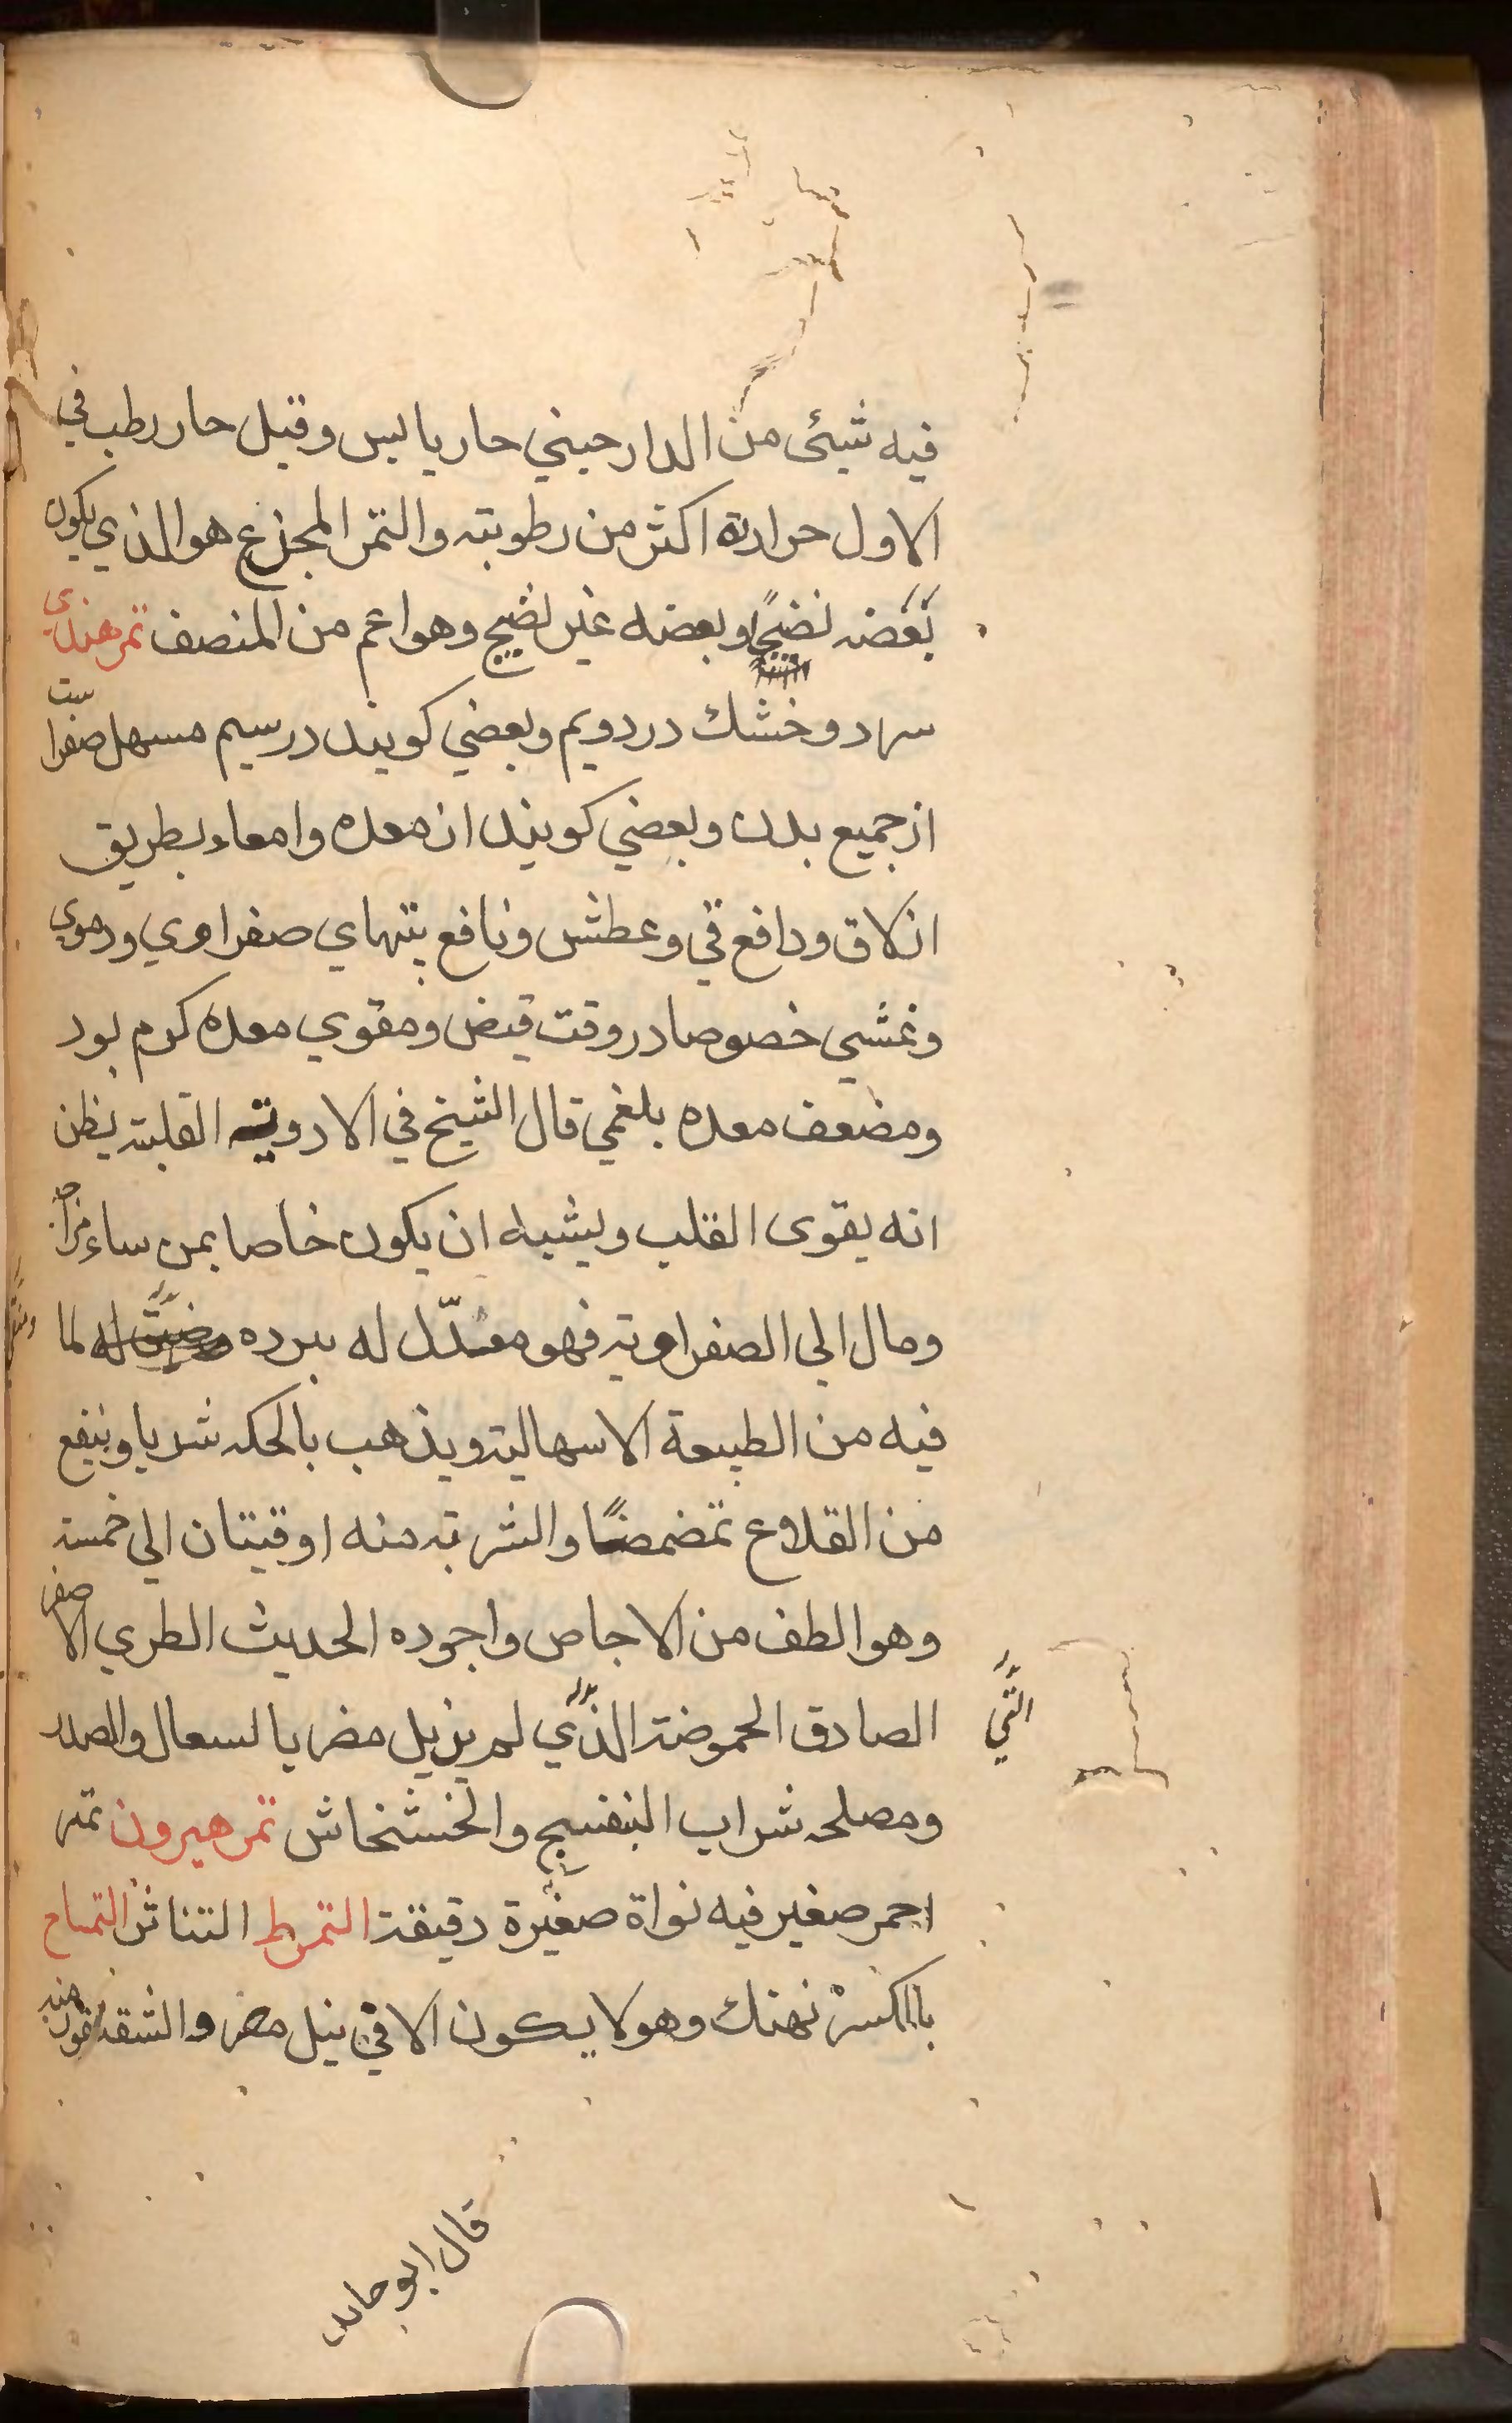 فيه شيئ من الدارحيني حار يابس وقيل حار رطب في
الاول حرارتة اكثر من رطوبته والتمر المجزع هو الذي يكون
بعضه نضيجًا وبعضه غير نضيج وهو اعم من المنصف تمر هندي
سرد وخشك در دويم وبعضي كويند در سيم مسهل صفراست
از جميع بدن وبعضي كويند از معده وامعاء بطريق
انلاق ودافع قي وعطش ونافع بتهاي صفراوي ودموي
وغشي خصوصا در وقت قيض ومقوي معده كرم بود
ومضعف معده بلغمي قال الشيخ في الادوية القلبية يظن
انه يقوى القلب ويشبه ان يكون خاصا بمن ساء مزاجه
ومال الي الصفراوية فهو معدّل له ببرده لما
فيه من الطبيعة الاسهالية ويذهب بالحكه شربا وينفع
من القلاع تمضمضًا والشربة منه اوقيتان الي خمسة
وهو الطف من الاجاص واجوده الحديث الطري الاصفر
الصادق الحموضة الذي لم يزيل مضر بالسعال والصدر
التي
ومصلحه شراب البنفسج والخشخاش تمر هيرون تمر
احمر صغير فيه نواة صغيرة دقيقة التمرط التناثر التمساح
بالكسر نهنك وهو لا يكون الا في نيل مصر والشقنقور منه
قال ابو حامد